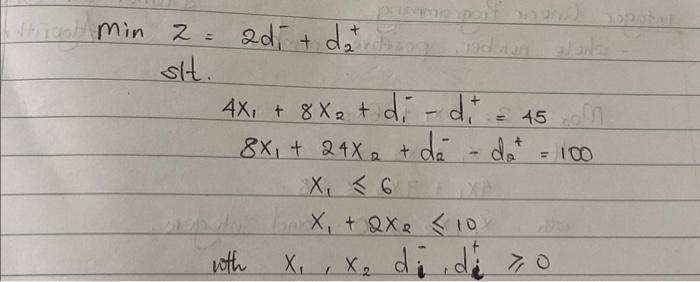 Min Z = 2d₁⁻ + d₂⁺
s/t.
4x₁ + 8x₂ + d₁⁻ - d₁⁺ = 45
8x₁ + 24x₂ + d₂⁻ - d₂⁺ = 100
x₁ ≤ 6
x₁ + 2x₂ ≤ 10
with x₁, x₂ dᵢ⁻, dᵢ⁺ ≥ 0